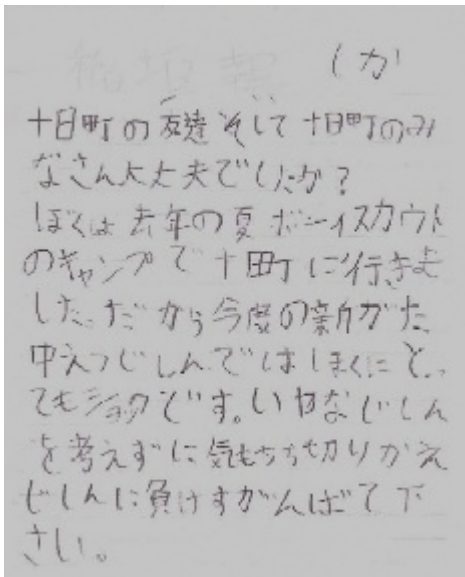 しか
十日町の友達そして十日町のみ
なさん大丈夫でしたか？
ぼくは去年の夏ボーイスカウト
のキャンプで十田町に行きま
した。だから今度の新がた
中えつじしんではぼくにとっ
てもショックです。いやなじしん
を考えずに気もち切りかえ
じしんに負けずがんばて下
さい。